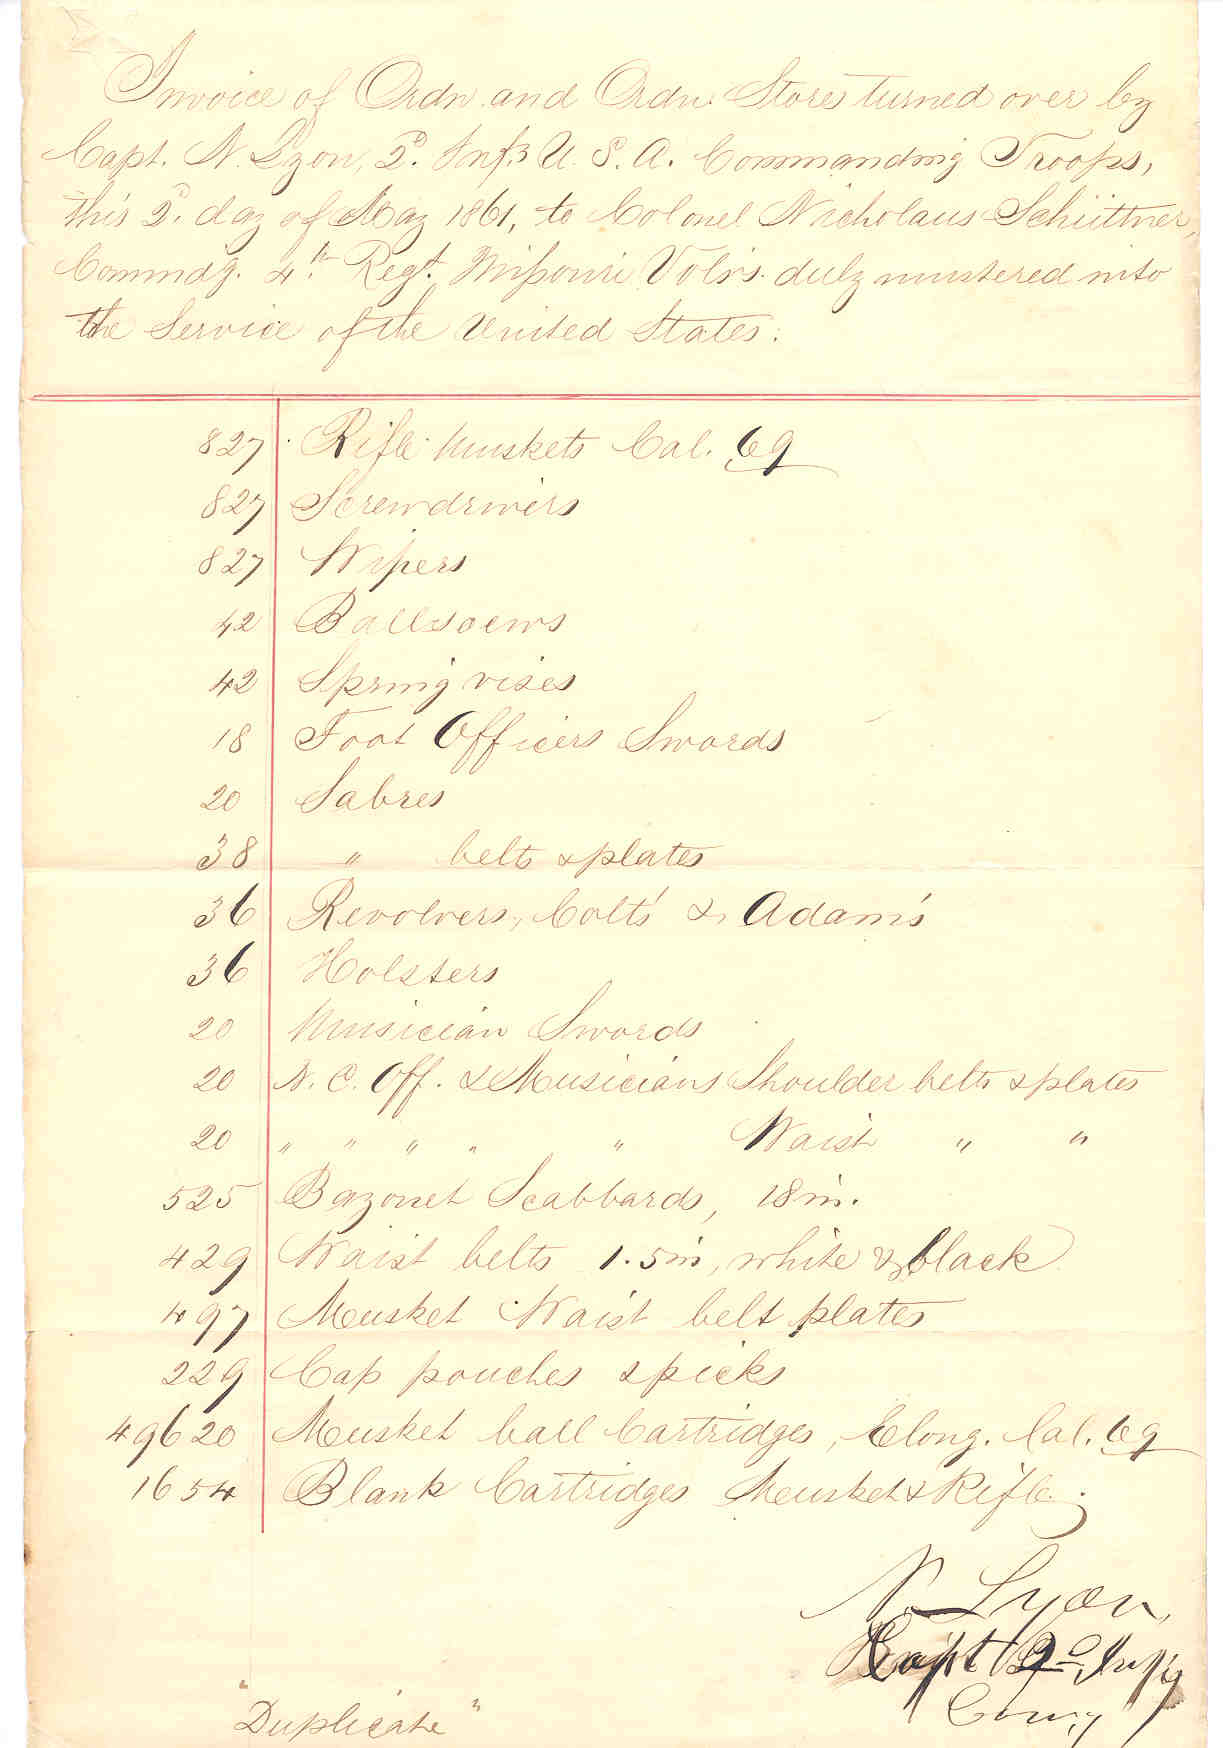 Invoice of Ordn. and Ordn. Stores turned over by
Capt. N. Lyon, 2d. Infy U. S. A. Commanding Troops,
this 2d. day of May 1861, to Colonel Nicholaus Schüttner,
Commdg. 4th. Regt. Missouri Vol's. duly mustered into
the Service of the United States:
827 Rifle Muskets Cal. 69
827 Screwdrivers
827 Wipers
42 Ballscrews
42 Spring vises
18 Foot Officers Swords
20 Sabres
38 " belts & plates
36 Revolvers, Colt's & Adam's
36 Holsters
20 Musician Swords
20 N. C. Off. & Musicians Shoulder belts & plates
20 " " " " " Waist " "
525 Bayonet Scabbards, 18 in.
429 Waist belts 1.5 in, white & black
497 Musket Waist belt plates
229 Cap pouches & picks
49620 Musket ball Cartridges, Elong. Cal. 69
1654 Blank Cartridges Musket & Rifle.
N. Lyon,
Capt 2d Infy
Comg
"Duplicate"